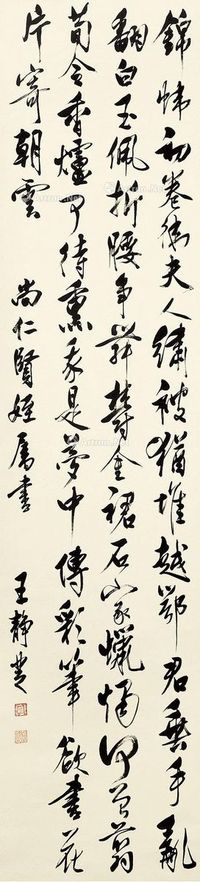 錦幃初卷衛夫人繡被猶堆越鄂君垂手亂
翻白玉佩折腰爭舞鬱金裙石家蠟燭何曾翦
荀令香爐可待熏我是夢中傳彩筆欲書花
片寄朝雲 尚仁賢姪属書 王靜芝